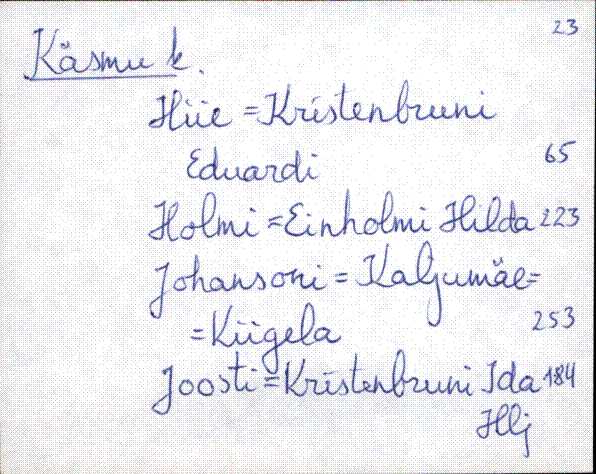 23
Käsmu k.
Hiie = Kristenbruni
Eduardi 65
Holmi = Einholmi Hilda 223
Johansoni = Kaljumäe =
= Kiigela 253
Joosti = Kristenbruni Ida 184
Hlj